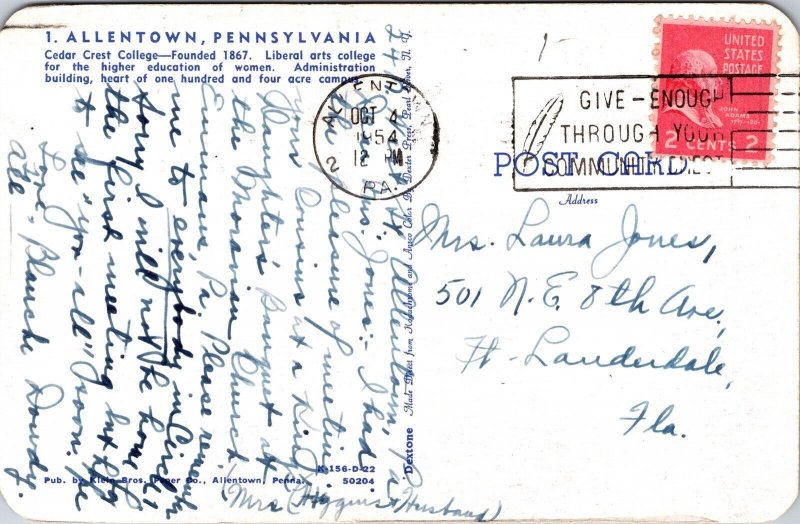 1. ALLENTOWN, PENNSYLVANIA
Cedar Crest College—Founded 1867. Liberal arts college
for the higher education of women. Administration
building, heart of one hundred and four acre campus.
Allentown, Pa
Dear Mrs. Jones: I had
the pleasure of meeting
your Cousins at a King's
Daughters' Banquet at
the Moravian Church
Emmaus, Pa. Please remember
me to everybody in Circle!
Sorry I will not be home
the first meeting but hope
to see "you-all" soon.
Love, Blanche Dowdy.
Mrs (Higgins + Husband)
K-156-D-22
Pub. by Klein Bros. Paper Co., Allentown, Penna.
50204
Dextone
Made Direct from Kodachrome and Ansco Color by Dexter Press, Pearl River, N. Y.
ALLENTOWN
OCT 4
1954
12 PM
2
PA.
GIVE-ENOUGH
THROUGH YOUR
COMMUNITY CHEST
UNITED
STATES
POSTAGE
JOHN
ADAMS
2 CENTS 2
POST CARD
Address
Mrs. Laura Jones,
501 N.E. 8th Ave,
Ft. Lauderdale,
Fla.